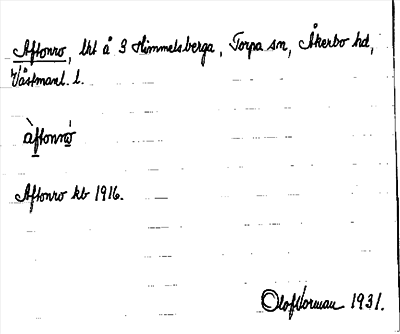 Aftonro, lht å S Himmelsberga, Torpa sn, Åkerbo hd,
Västmanl. l.
àftonnó
Aftonro kb 1916.
Olof Vorman 1931.